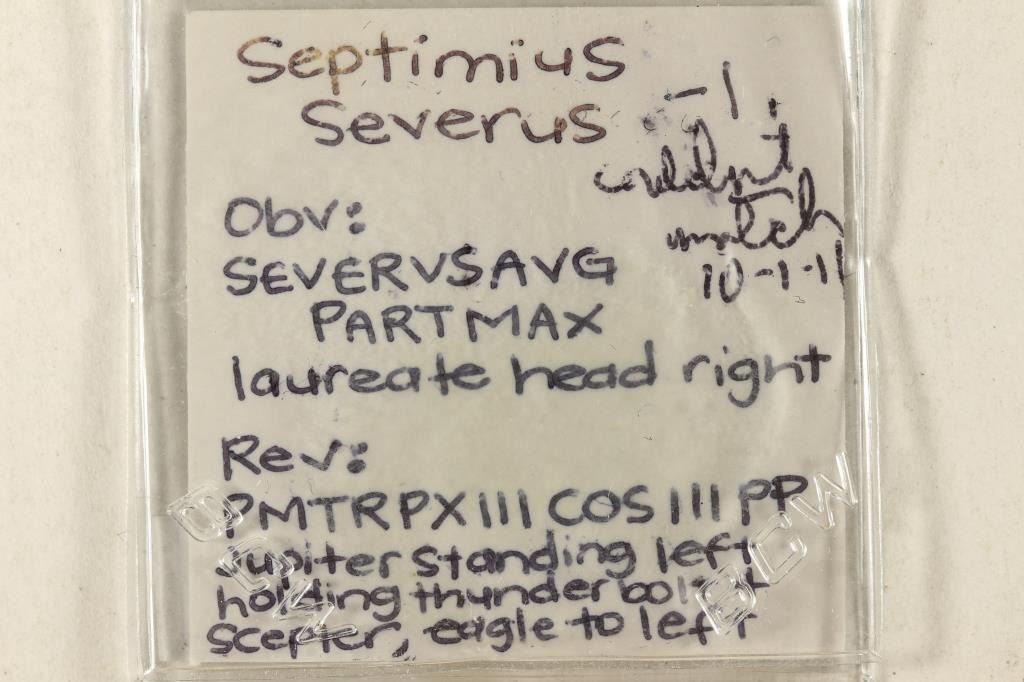 Septimius
Severus
-1
couldn't
match
10-1-11
Obv:
SEVERVSAVG
PARTMAX
laureate head right
Rev:
PMTRPXIII COS III PP
Jupiter standing left
holding thunderbolt +
scepter, eagle to left
BCW
BCW